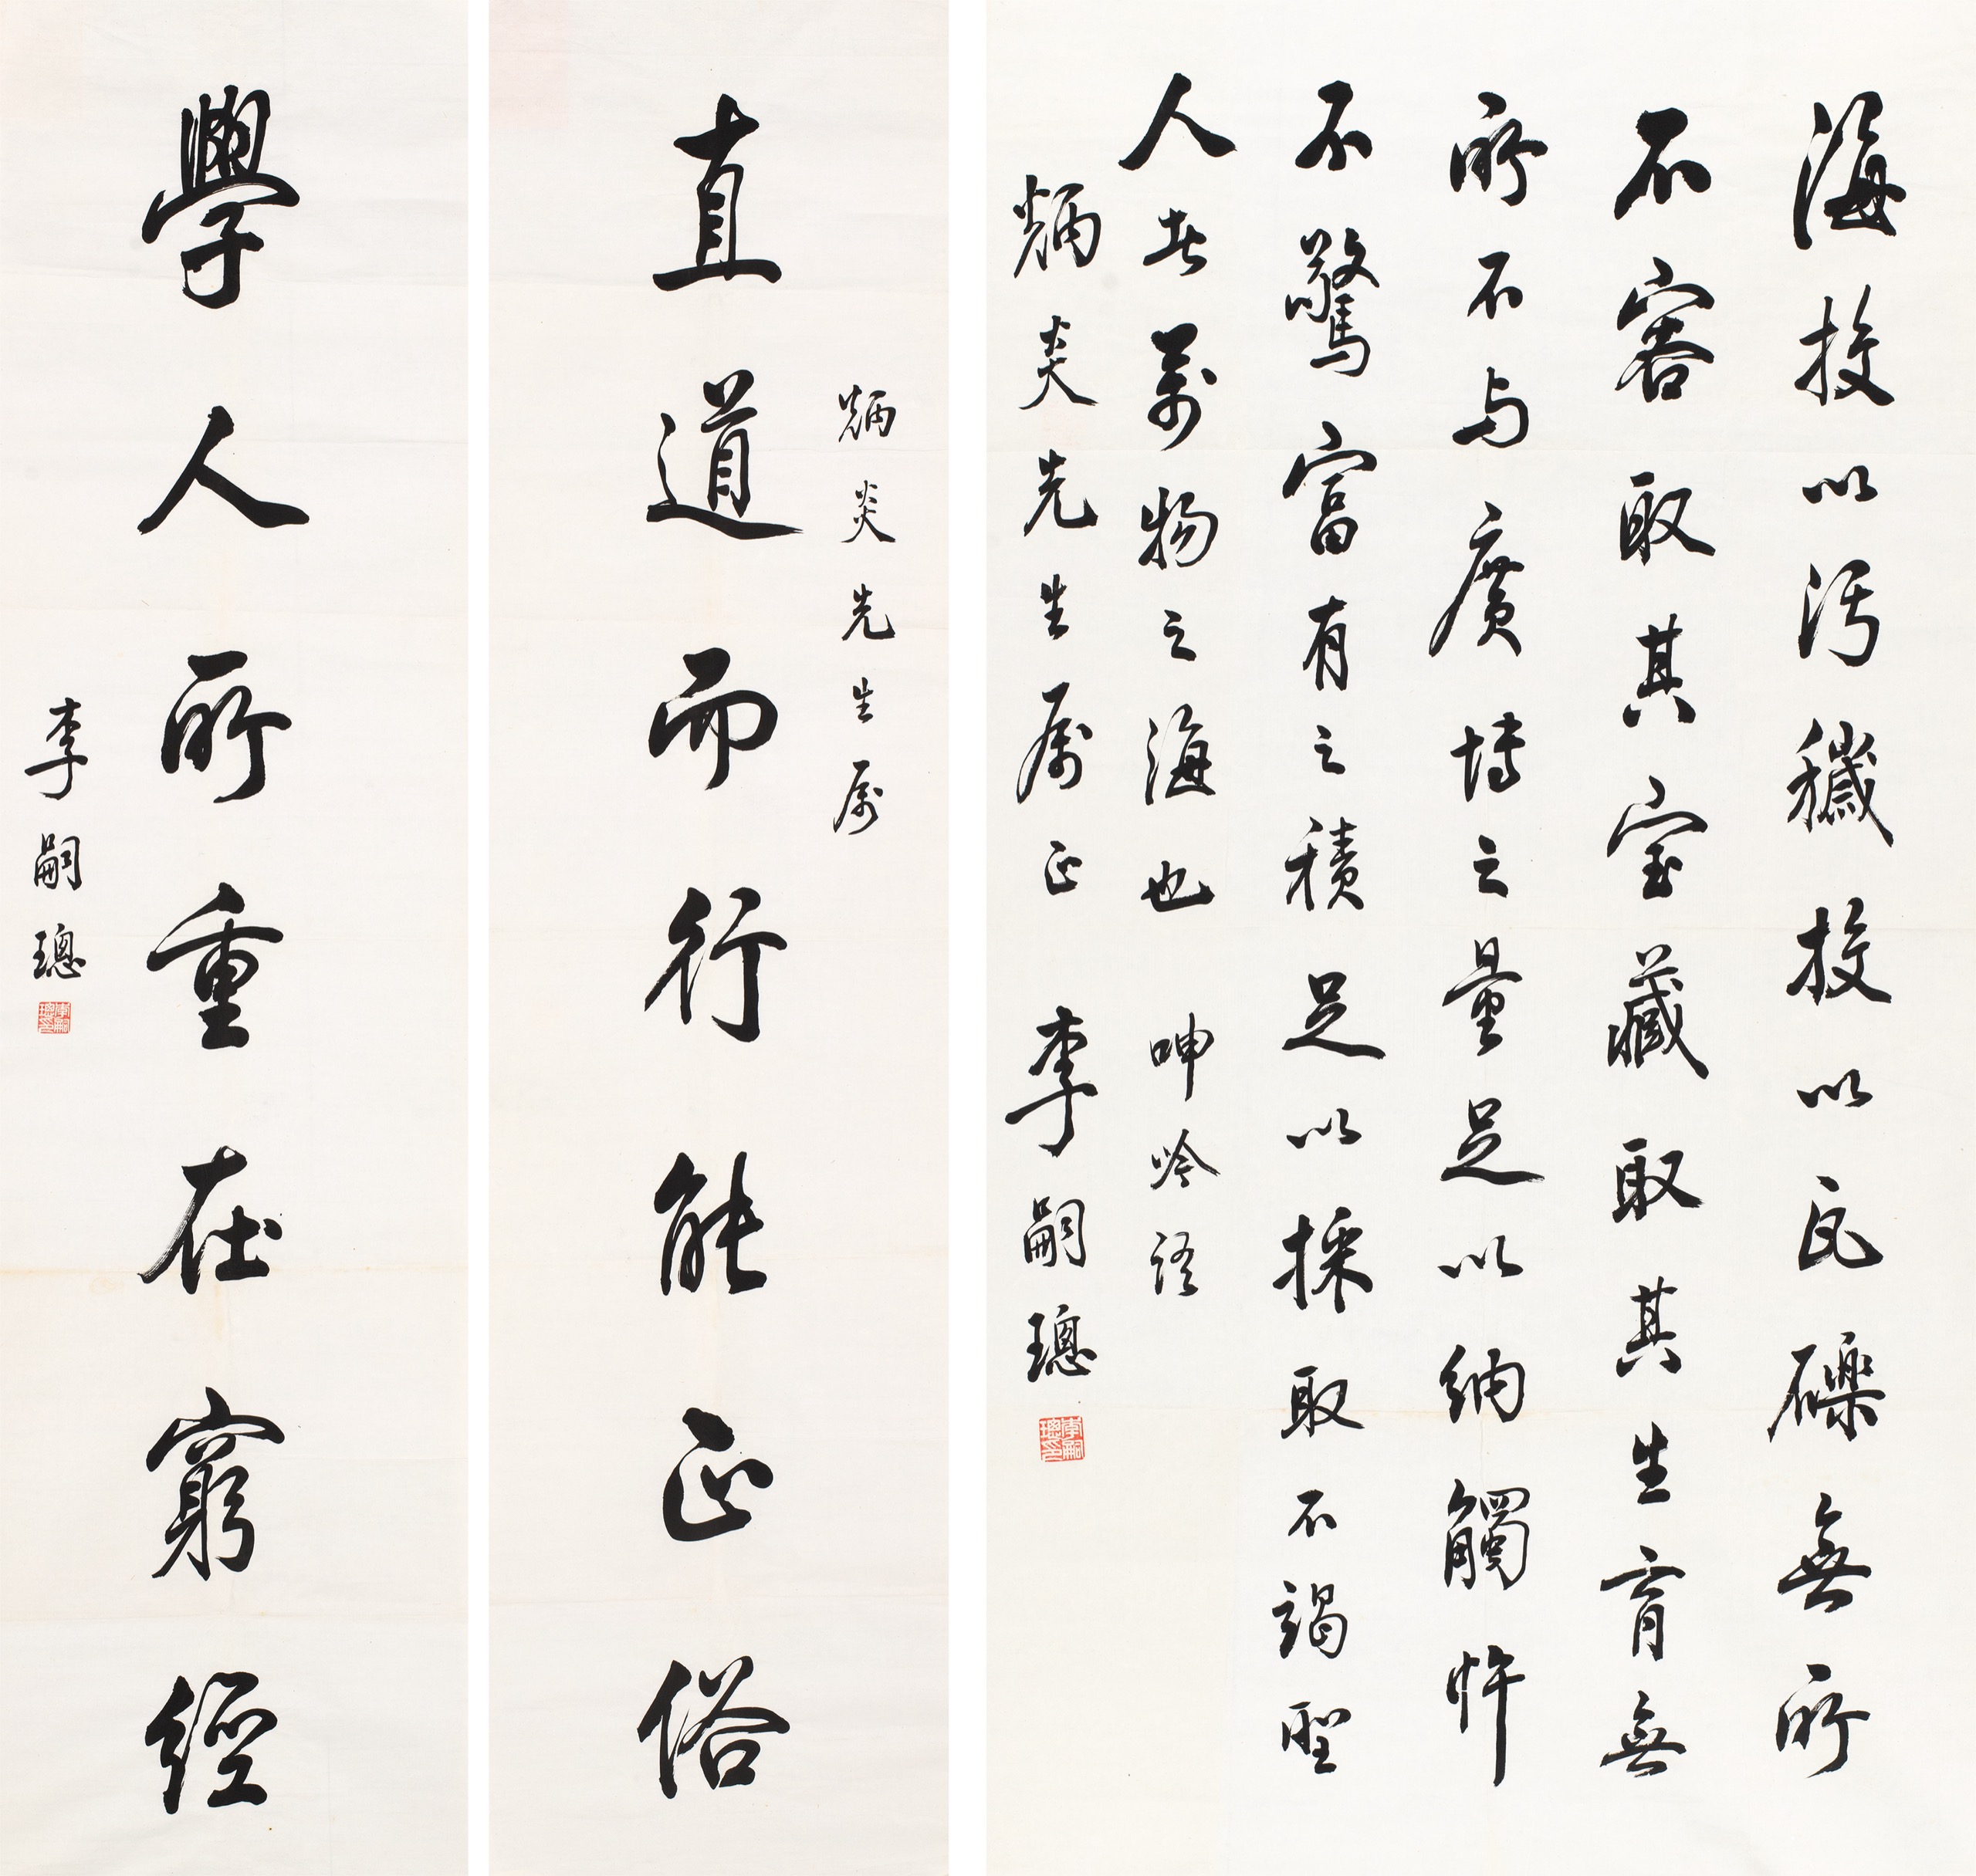 海投以污穢投以瓦礫無所
不容取其宝藏取其生育無
所不与廣博之量足以納觸忤
不驚富有之積足以採取不竭聖
人者萬物之海也 呻吟語
炳炎先生属正 李嗣璁
李嗣璁印
炳炎先生属
直道而行能正俗
學人所重在窮經
李嗣璁
李嗣璁印